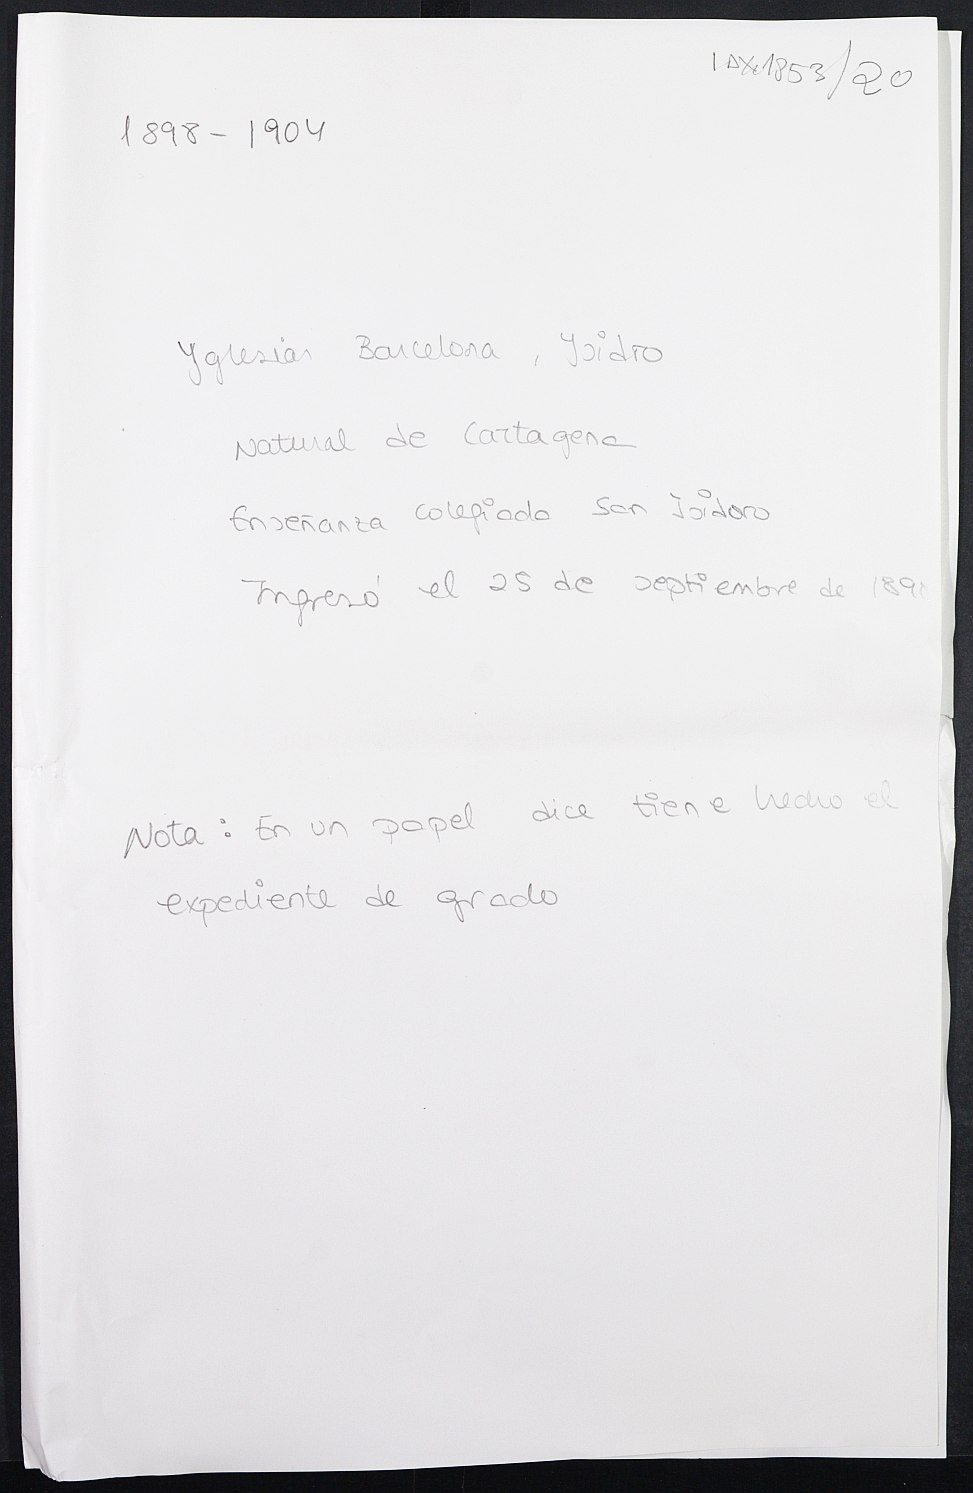 IAX1853/20
1898-1904
Yglesias Barcelona, Ysidro
Natural de Cartagena
Enseñanza colegiada San Isidoro
Ingresó el 25 de septiembre de 1898
Nota: En un papel dice tiene hecho el
expediente de grado